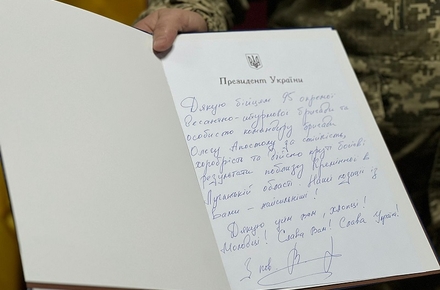 Президент України
Дякую бійцям 95 окремої
десантно-штурмової бригади та
особисто командиру бригади
Олегу Апостолу за стійкість,
хоробрість та дійсно круті бойові
результати поблизу Кремінної в
Луганській області! Наші позиції з
Вами – найсильніші!
Дякую усім вам, хлопці!
Молодці! Слава Вам! Слава Україні!
З пов